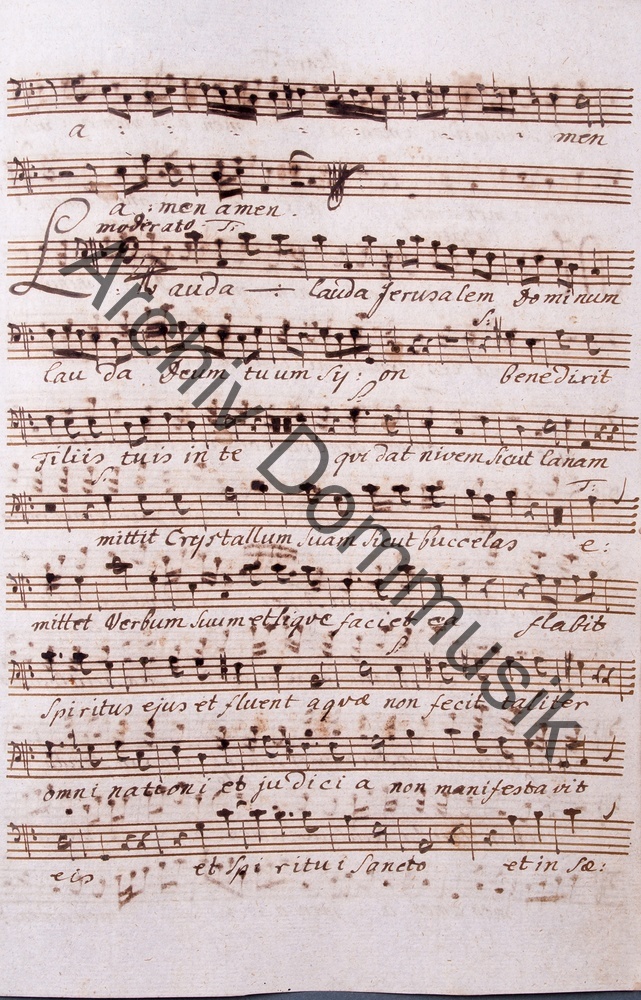 a : : : : : : : men
a : men amen.
moderato T:
Lauda — : lauda Jerusalem Dominum
S:
lau da Deum tuum Sy: on benedixit
filiis tuis in te qvi dat nivem sicut lanam
S: T:
mittit Crystallum suam sicut buccelas e:
mittet Verbum suum etliqve faciet ea flabit
spiritus ejus et fluent aqvæ non fecit taliter
omni nationi et judicia non manifestavit
eis et spiritui Sancto et in sæ:
Archiv Dommusik